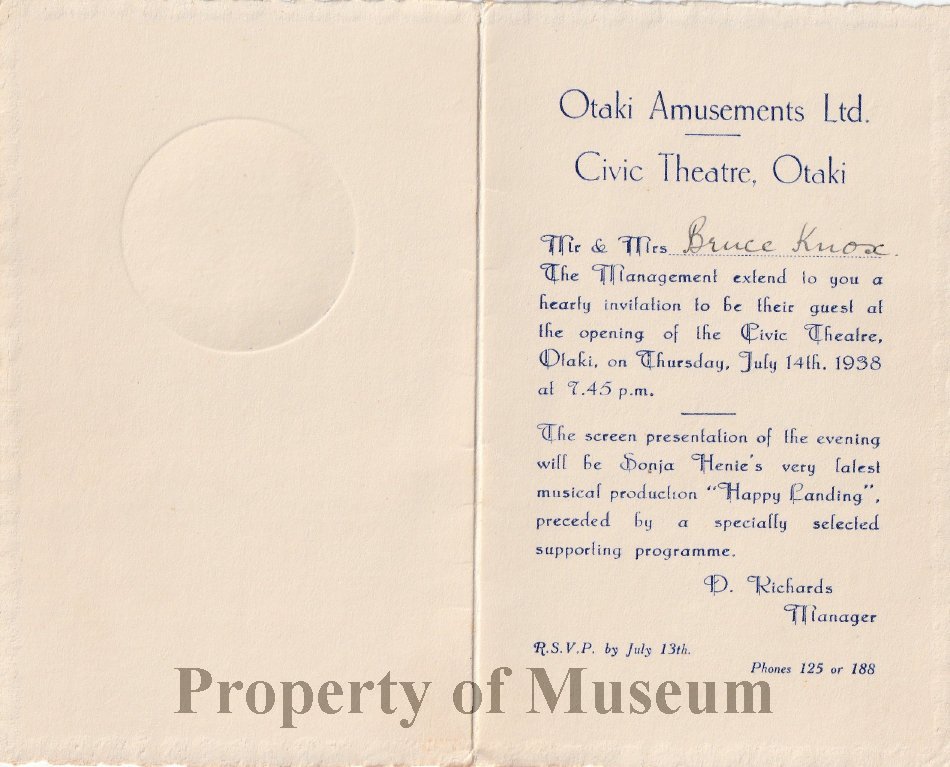 Otaki Amusements Ltd.
Civic Theatre, Otaki
Mr & Mrs Bruce Knox.
The Management extend to you a
hearty invitation to be their guest at
the opening of the Civic Theatre,
Otaki, on Thursday, July 14th. 1938
at 7.45 p.m.
The screen presentation of the evening
will be Sonja Henie's very latest
musical production "Happy Landing",
preceded by a specially selected
supporting programme.
D. Richards
Manager
R.S.V.P. by July 13th.
Phones 125 or 188
Property of Museum